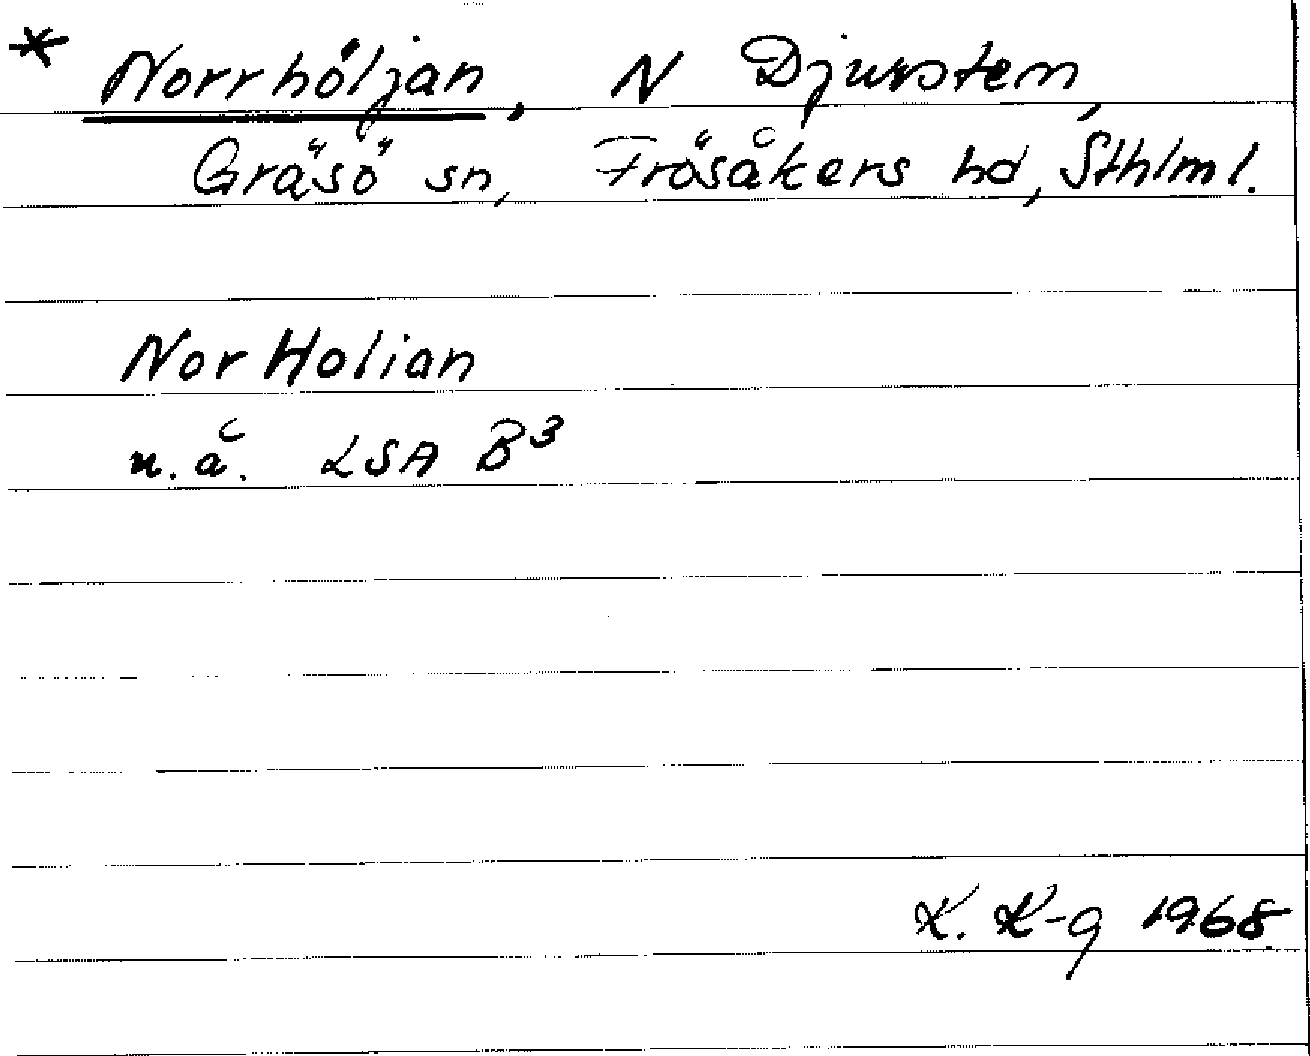 * Norrhöljan, N Djursten,
Gräsö sn, Frösåkers hd, Sthlm l.
Nor Holian
n.å. LSA B³
K. K-g 1968